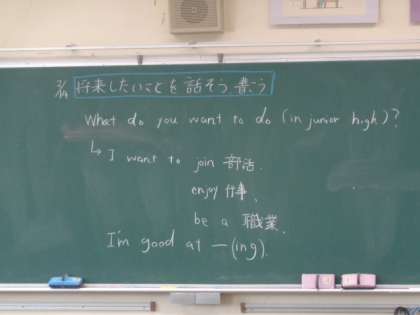 2/19 将来したいことを話そう 書こう
What do you want to do (in junior high)?
↳ I want to join 部活.
enjoy 行事.
be a 職業.
I'm good at ー(ing).